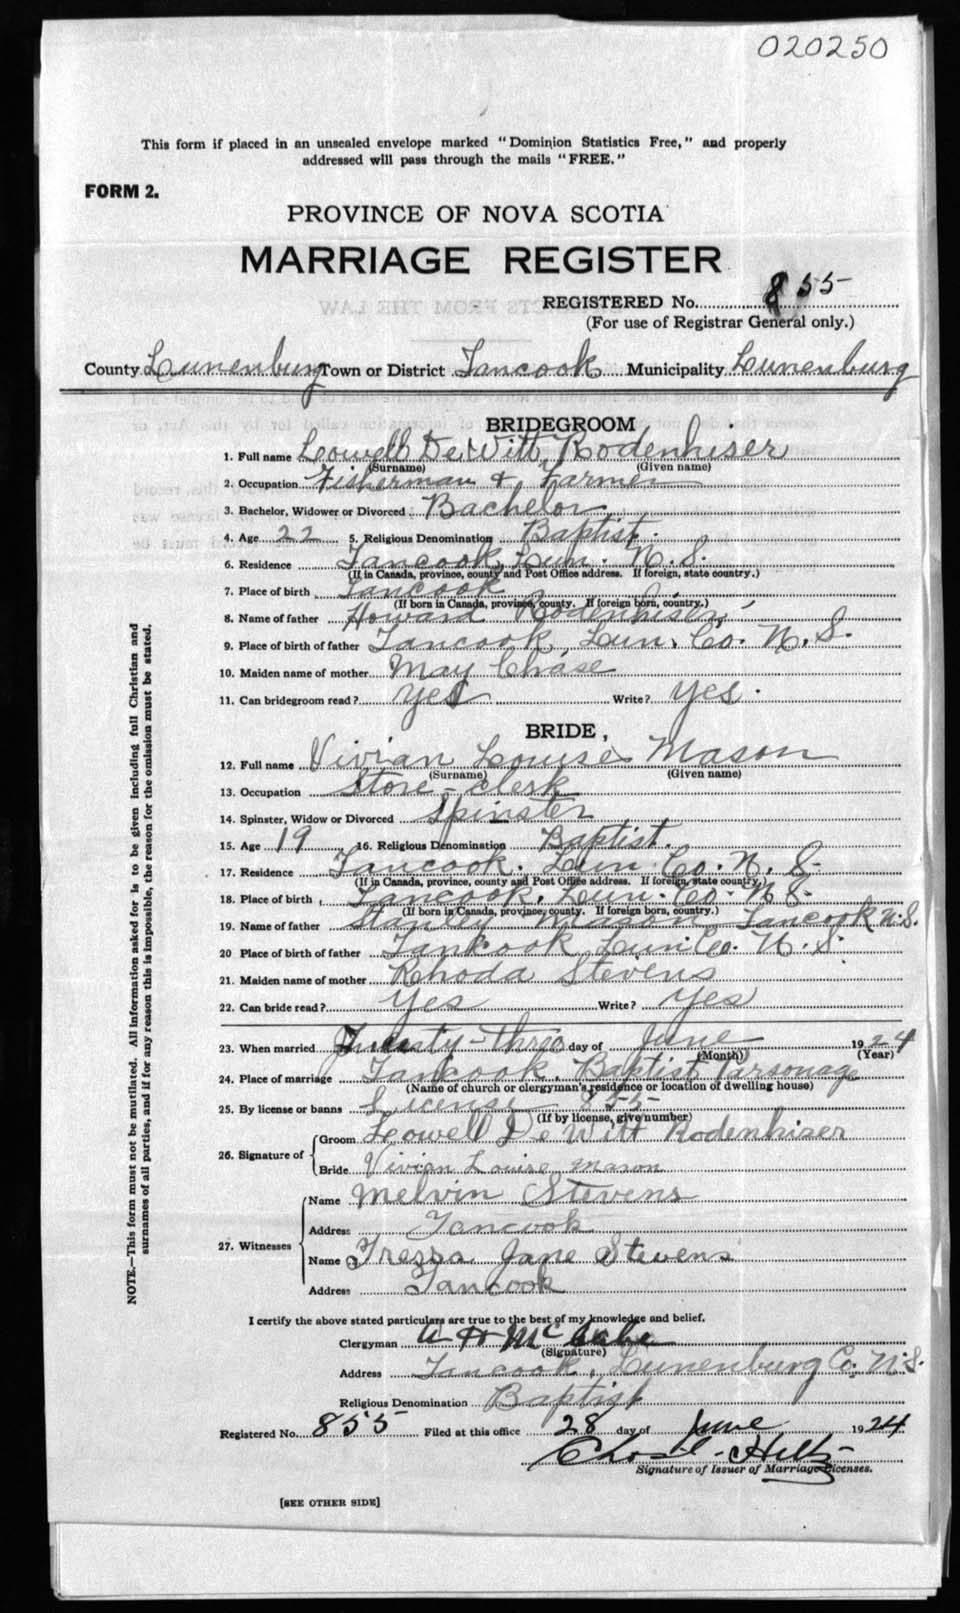 020250
This form if placed in an unsealed envelope marked "Dominion Statistics Free," and properly
addressed will pass through the mails "FREE."
FORM 2.
PROVINCE OF NOVA SCOTIA
MARRIAGE REGISTER
REGISTERED No. 855
(For use of Registrar General only.)
County Lunenburg Town or District Tancook Municipality Lunenburg
BRIDEGROOM
1. Full name Lowell DeWitt Rodenhiser
(Surname) (Given name)
2. Occupation Fisherman & Farmer
3. Bachelor, Widower or Divorced Bachelor
4. Age 22 5. Religious Denomination Baptist.
6. Residence Tancook, Lun. N. S.
(If in Canada, province, county and Post Office address. If foreign, state country.)
7. Place of birth Tancook
(If born in Canada, province, county. If foreign born, country.)
8. Name of father Howard Rodenhiser
9. Place of birth of father Tancook, Lun. Co. N. S.
10. Maiden name of mother May Chase
11. Can bridegroom read? Yes Write? Yes.
BRIDE,
12. Full name Vivian Louise Mason
(Surname) (Given name)
13. Occupation Store-clerk
14. Spinster, Widow or Divorced Spinster
15. Age 19 16. Religious Denomination Baptist.
17. Residence Tancook. Lun. Co. N. S.
(If in Canada, province, county and Post Office address. If foreign, state country.)
18. Place of birth Tancook. Lun. Co. N S.
(If born in Canada, province, county. If foreign born, country.)
19. Name of father Stanley Mason Tancook N.S.
20 Place of birth of father Tankook Lun. Co. N. S.
21. Maiden name of mother Rhoda Stevens
22. Can bride read? Yes Write? Yes
23. When married Twenty-three day of June 1924
(Month) (Year)
24. Place of marriage Tancook, Baptist Parsonage
(Name of church or clergyman's residence or location of dwelling house)
25. By license or banns License 855
(If by license, give number)
26. Signature of Groom Lowell DeWitt Rodenhiser
Bride Vivian Louise Mason
27. Witnesses Name Melvin Stevens
Address Tancook
Name Trezza Jane Stevens
Address Tancook
I certify the above stated particulars are true to the best of my knowledge and belief.
Clergyman A H McCabe
(Signature)
Address Tancook, Lunenburg Co. N.S.
Religious Denomination Baptist
Registered No. 855 Filed at this office 28 day of June 1924
Chas L. Hiltz
Signature of Issuer of Marriage Licenses.
[SEE OTHER SIDE]
NOTE.—This form must not be mutilated. All information asked for is to be given including full Christian and
surnames of all parties, and if for any reason this is impossible, the reason for the omission must be stated.